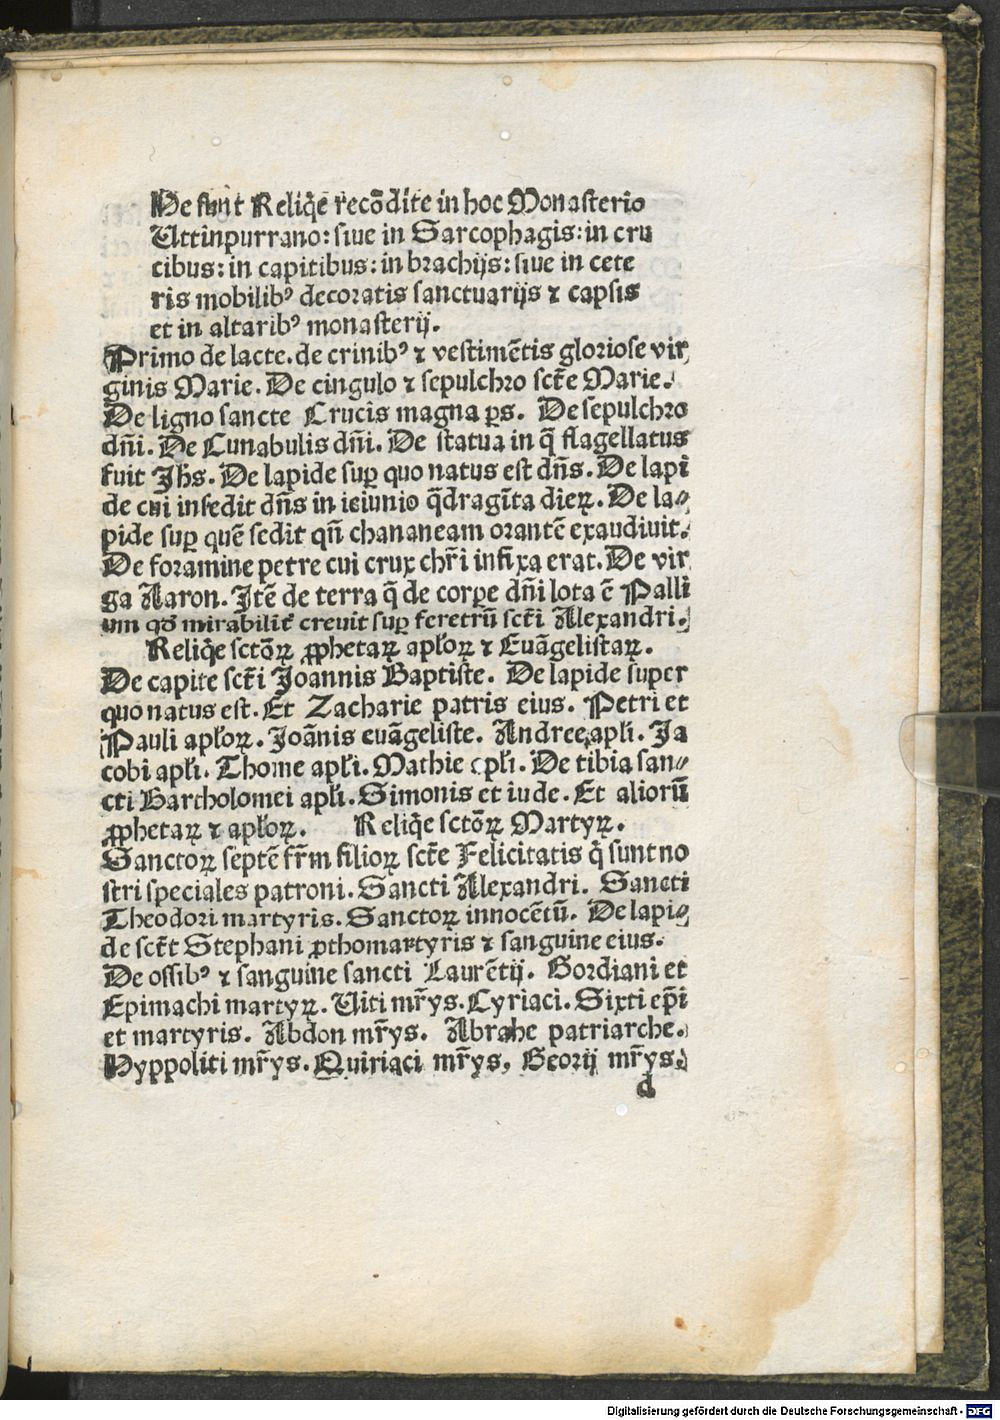 He sunt Reliq̄e recōdite in hoc Monasterio
Uttinpurrano: siue in Sarcophagis: in cru
cibus: in capitibus: in brachijs: siue in cete
ris mobilibꝰ decoratis sanctuarijs ⁊ capsis
et in altaribꝰ monasterij.
Primo de lacte. de crinibꝰ ⁊ vestimētis gloriose vir
ginis Marie. De cingulo ⁊ sepulchro sct̄e Marie.
De ligno sancte Crucis magna ꝑs. De sepulchro
dn̄i. De Cunabulis dn̄i. De statua in q̄ flagellatus
fuit Jhs. De lapide suꝑ quo natus est dn̄s. De lapi
de cui insedit dn̄s in ieiunio q̄dragīta dieꝝ. De la⸗
pide suꝑ quē sedit qn̄ chananeam orantē exaudiuit.
De foramine petre cui crux chr̄i infixa erat. De vir
ga Aaron. Jtē de terra q̄ de corꝑe dn̄i lota ē Palli
um qd̄ mirabilit̄ creuit suꝑ feretrū sct̄i Alexandri.
Reliq̄e sctōꝝ ꝓphetaꝝ apl̄oꝝ ⁊ Euāgelistaꝝ.
De capite sct̄i Joannis Baptiste. De lapide super
quo natus est. Et Zacharie patris eius. Petri et
Pauli apl̄oꝝ. Joānis euāgeliste. Andree apl̄i. Ja
cobi apl̄i. Thome apl̄i. Mathie apl̄i. De tibia san⸗
cti Bartholomei apl̄i. Simonis et iude. Et aliorū
ꝓphetaꝝ ⁊ apl̄oꝝ. Reliq̄e sctōꝝ Martyꝝ.
Sanctoꝝ septē fr̄m filioꝝ sct̄e Felicitatis q̄ sunt no
stri speciales patroni. Sancti Alexandri. Sancti
Theodori martyris. Sanctoꝝ innocētū. De lapi⸗
de sct̄i Stephani ꝓthomartyris ⁊ sanguine eius.
De ossibꝰ ⁊ sanguine sancti Laurētij. Gordiani et
Epimachi martyꝝ. Uiti mr̄ys. Cyriaci. Sixti ep̄i
et martyris. Abdon mr̄ys. Abrahe patriarche.
Hyppoliti mr̄ys. Quiriaci mr̄ys. Georij mr̄ys.
d
Digitalisierung gefördert durch die Deutsche Forschungsgemeinschaft - DFG